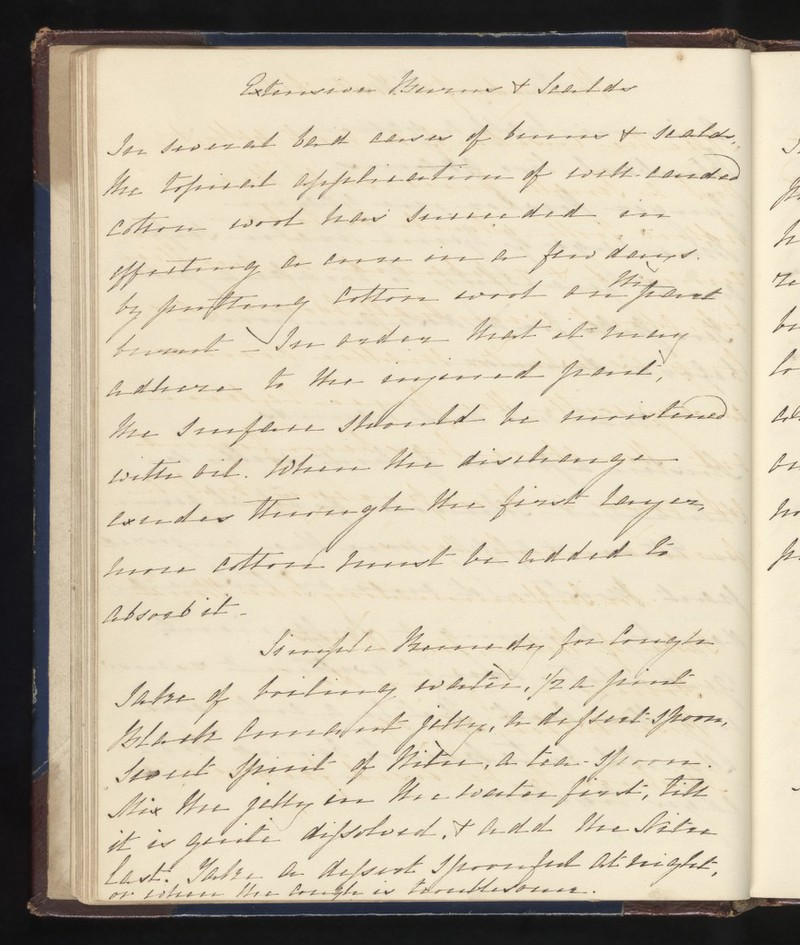 Extensive Burns & Scalds
In several bad cases of burns & scalds,
the topical application of well-carded
cotton wool has succeeded in
effecting a cure in a few days.
by putting cotton wool on the part
burnt – In order that it may
adhere to the injured part,
the surface should be moistened
with oil. When the discharge
exudes through the first layer,
more cotton must be added to
absorb it –
Simple Remedy for Cough
Take of boiling water, 1/2 a pint
Black Currant jelly, a dessert-spoon,
Sweet Spirit of Nitre, a tea-spoon.
Mix the jelly in the water first, till
it is quite dissolved, & add the Nitre
last. Take a dessert spoonful at night,
or when the cough is troublesome.